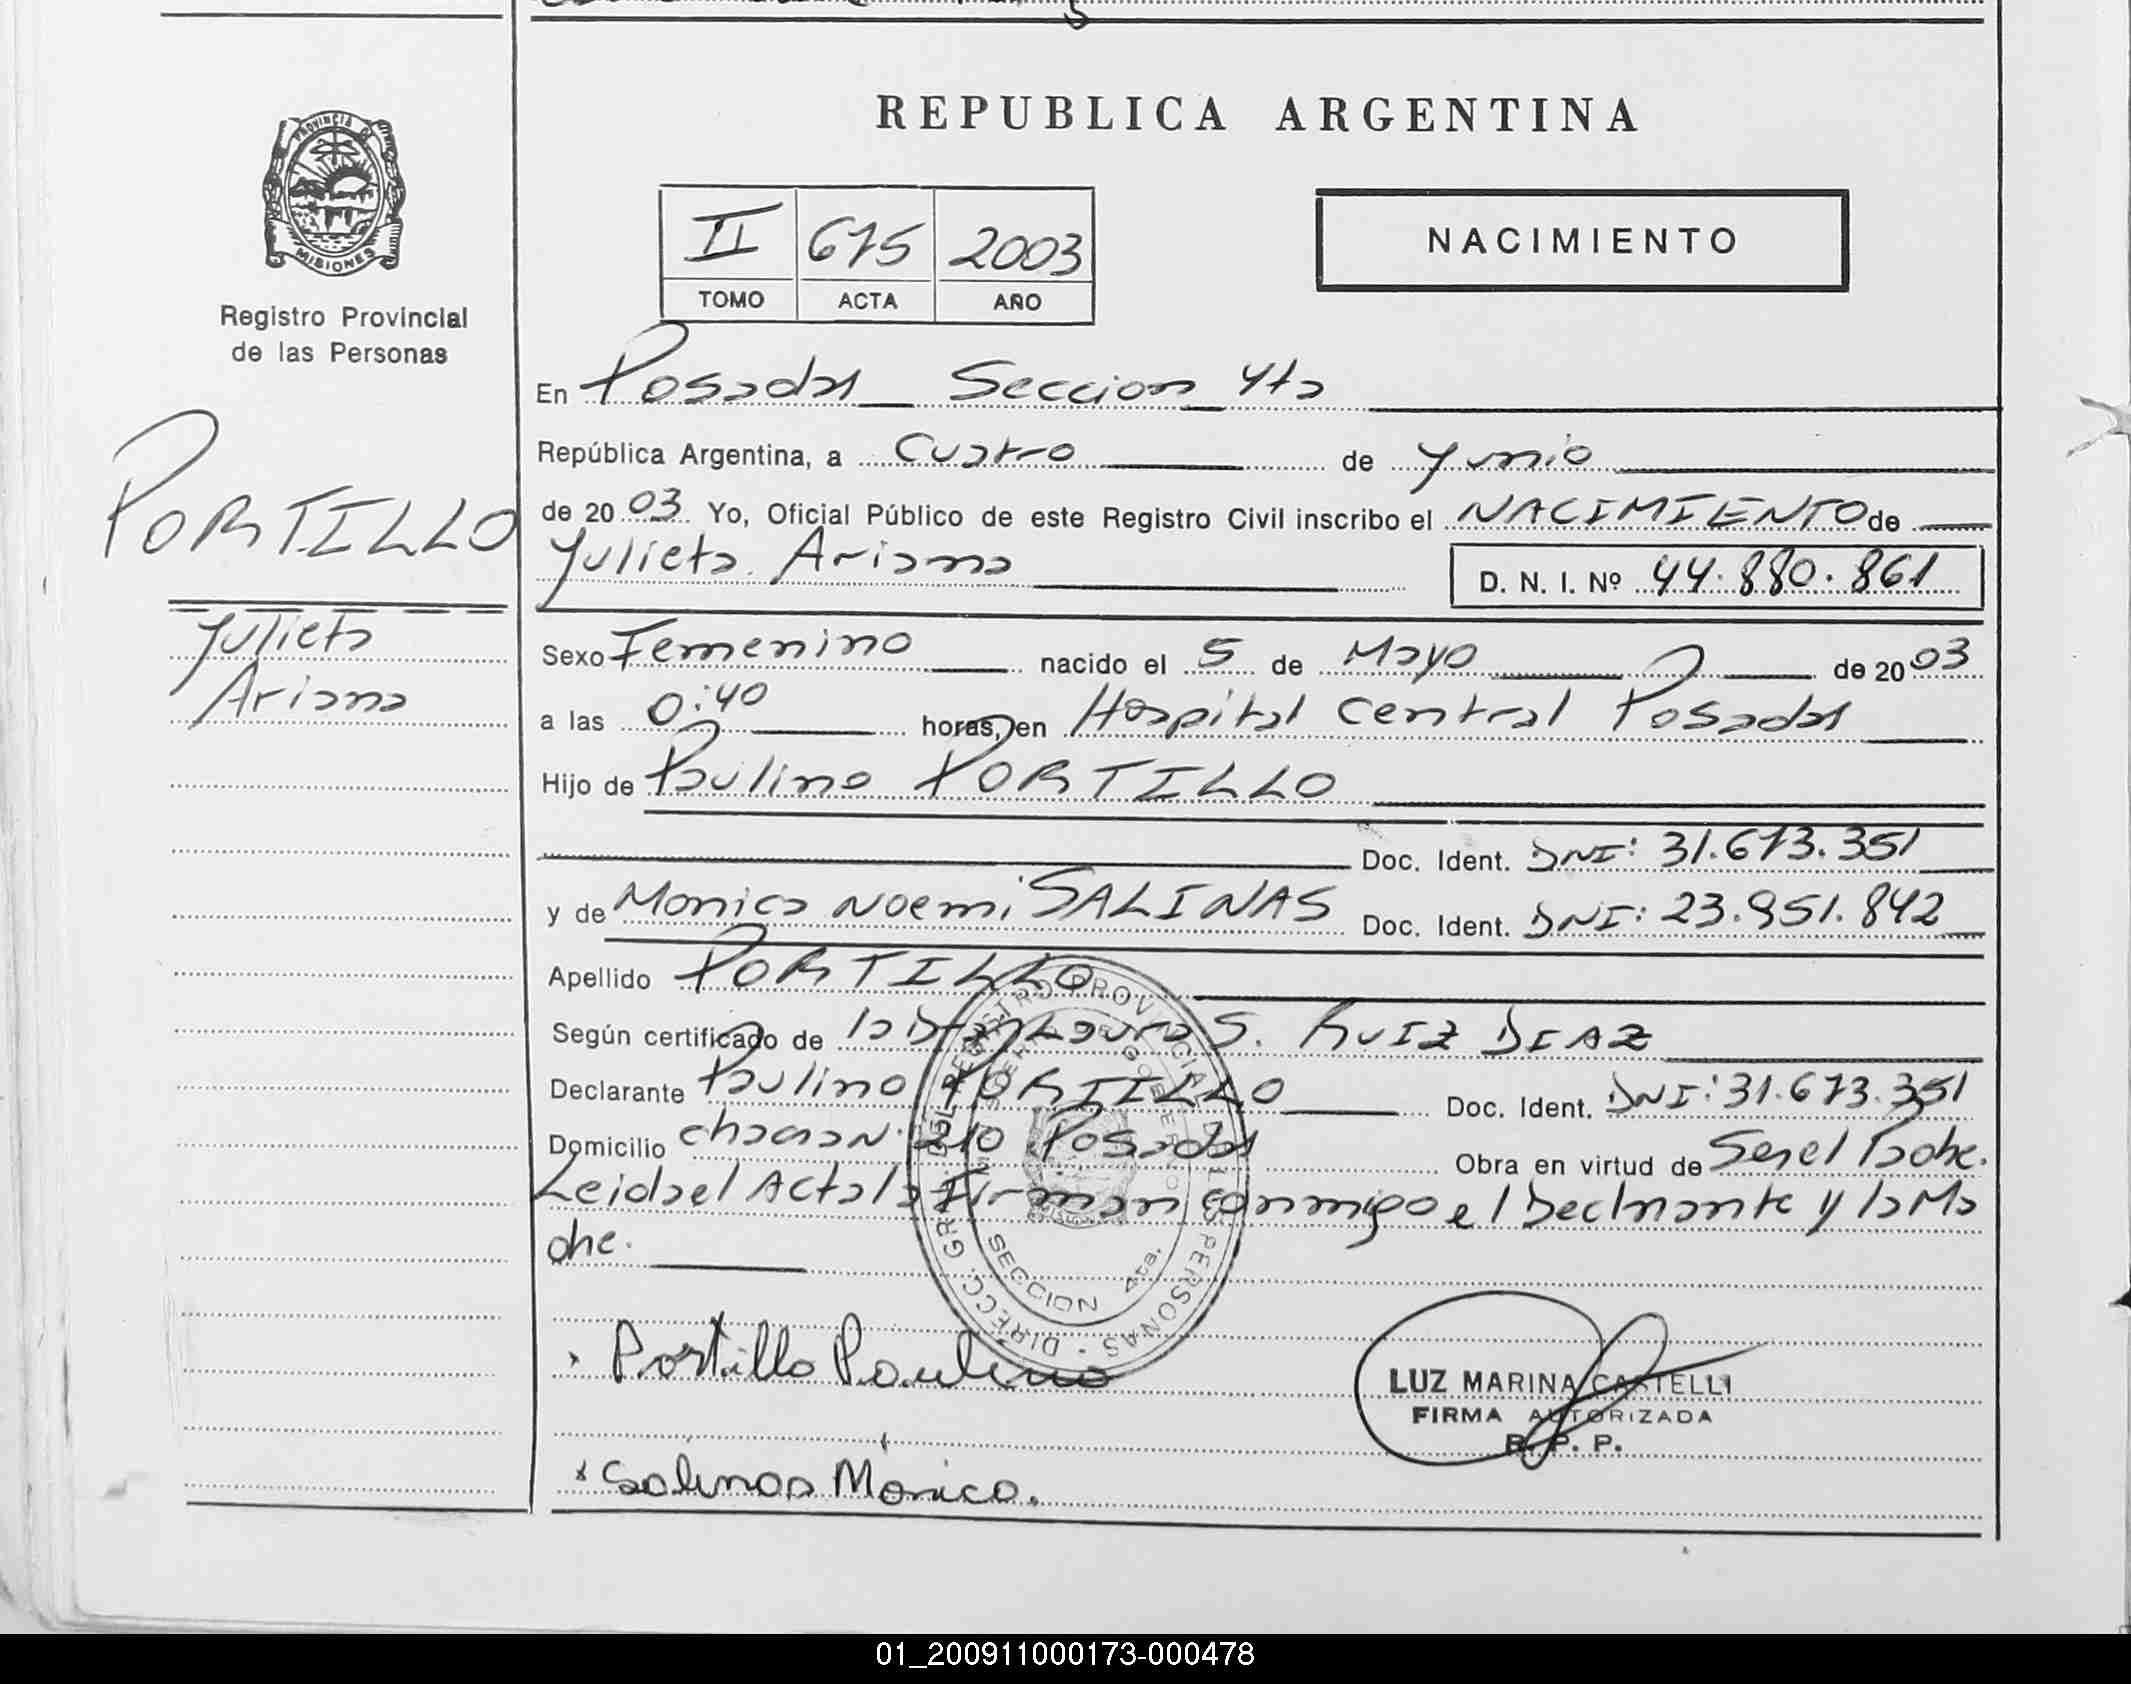 REPUBLICA ARGENTINA
PROVINCIA DE
MISIONES
Registro Provincial
de las Personas
II 675 2003
TOMO ACTA AÑO
NACIMIENTO
En Posadas Seccion 4ta
República Argentina, a Cuatro de Junio
de 2003 Yo, Oficial Público de este Registro Civil inscribo el NACIMIENTO de
Julieta Ariana D. N. I. Nº 44.880.861
PORTILLO
Julieta
Ariana
Sexo Femenino nacido el 5 de Mayo de 2003
a las 0:40 horas, en Hospital Central Posadas
Hijo de Paulino PORTILLO
Doc. Ident. DNI: 31.673.351
y de Monica Noemi SALINAS Doc. Ident. DNI: 23.951.842
Apellido PORTILLO
Según certificado de la Laura S. RUIZ DIAZ
Declarante Paulino PORTILLO Doc. Ident. DNI: 31.673.351
Domicilio Nº 210 Posadas Obra en virtud de Ser el Padre.
Leida el Acta la Firman conmigo el Declarante y la Ma
dre.
DIRECC. GRAL. DEL REGISTRO PROVINCIAL DE LAS PERSONAS
SECCION 4ta.
Portillo Paulino
LUZ MARINA CASTELLI
FIRMA AUTORIZADA
R. P. P.
Salinas Monica.
01_200911000173-000478